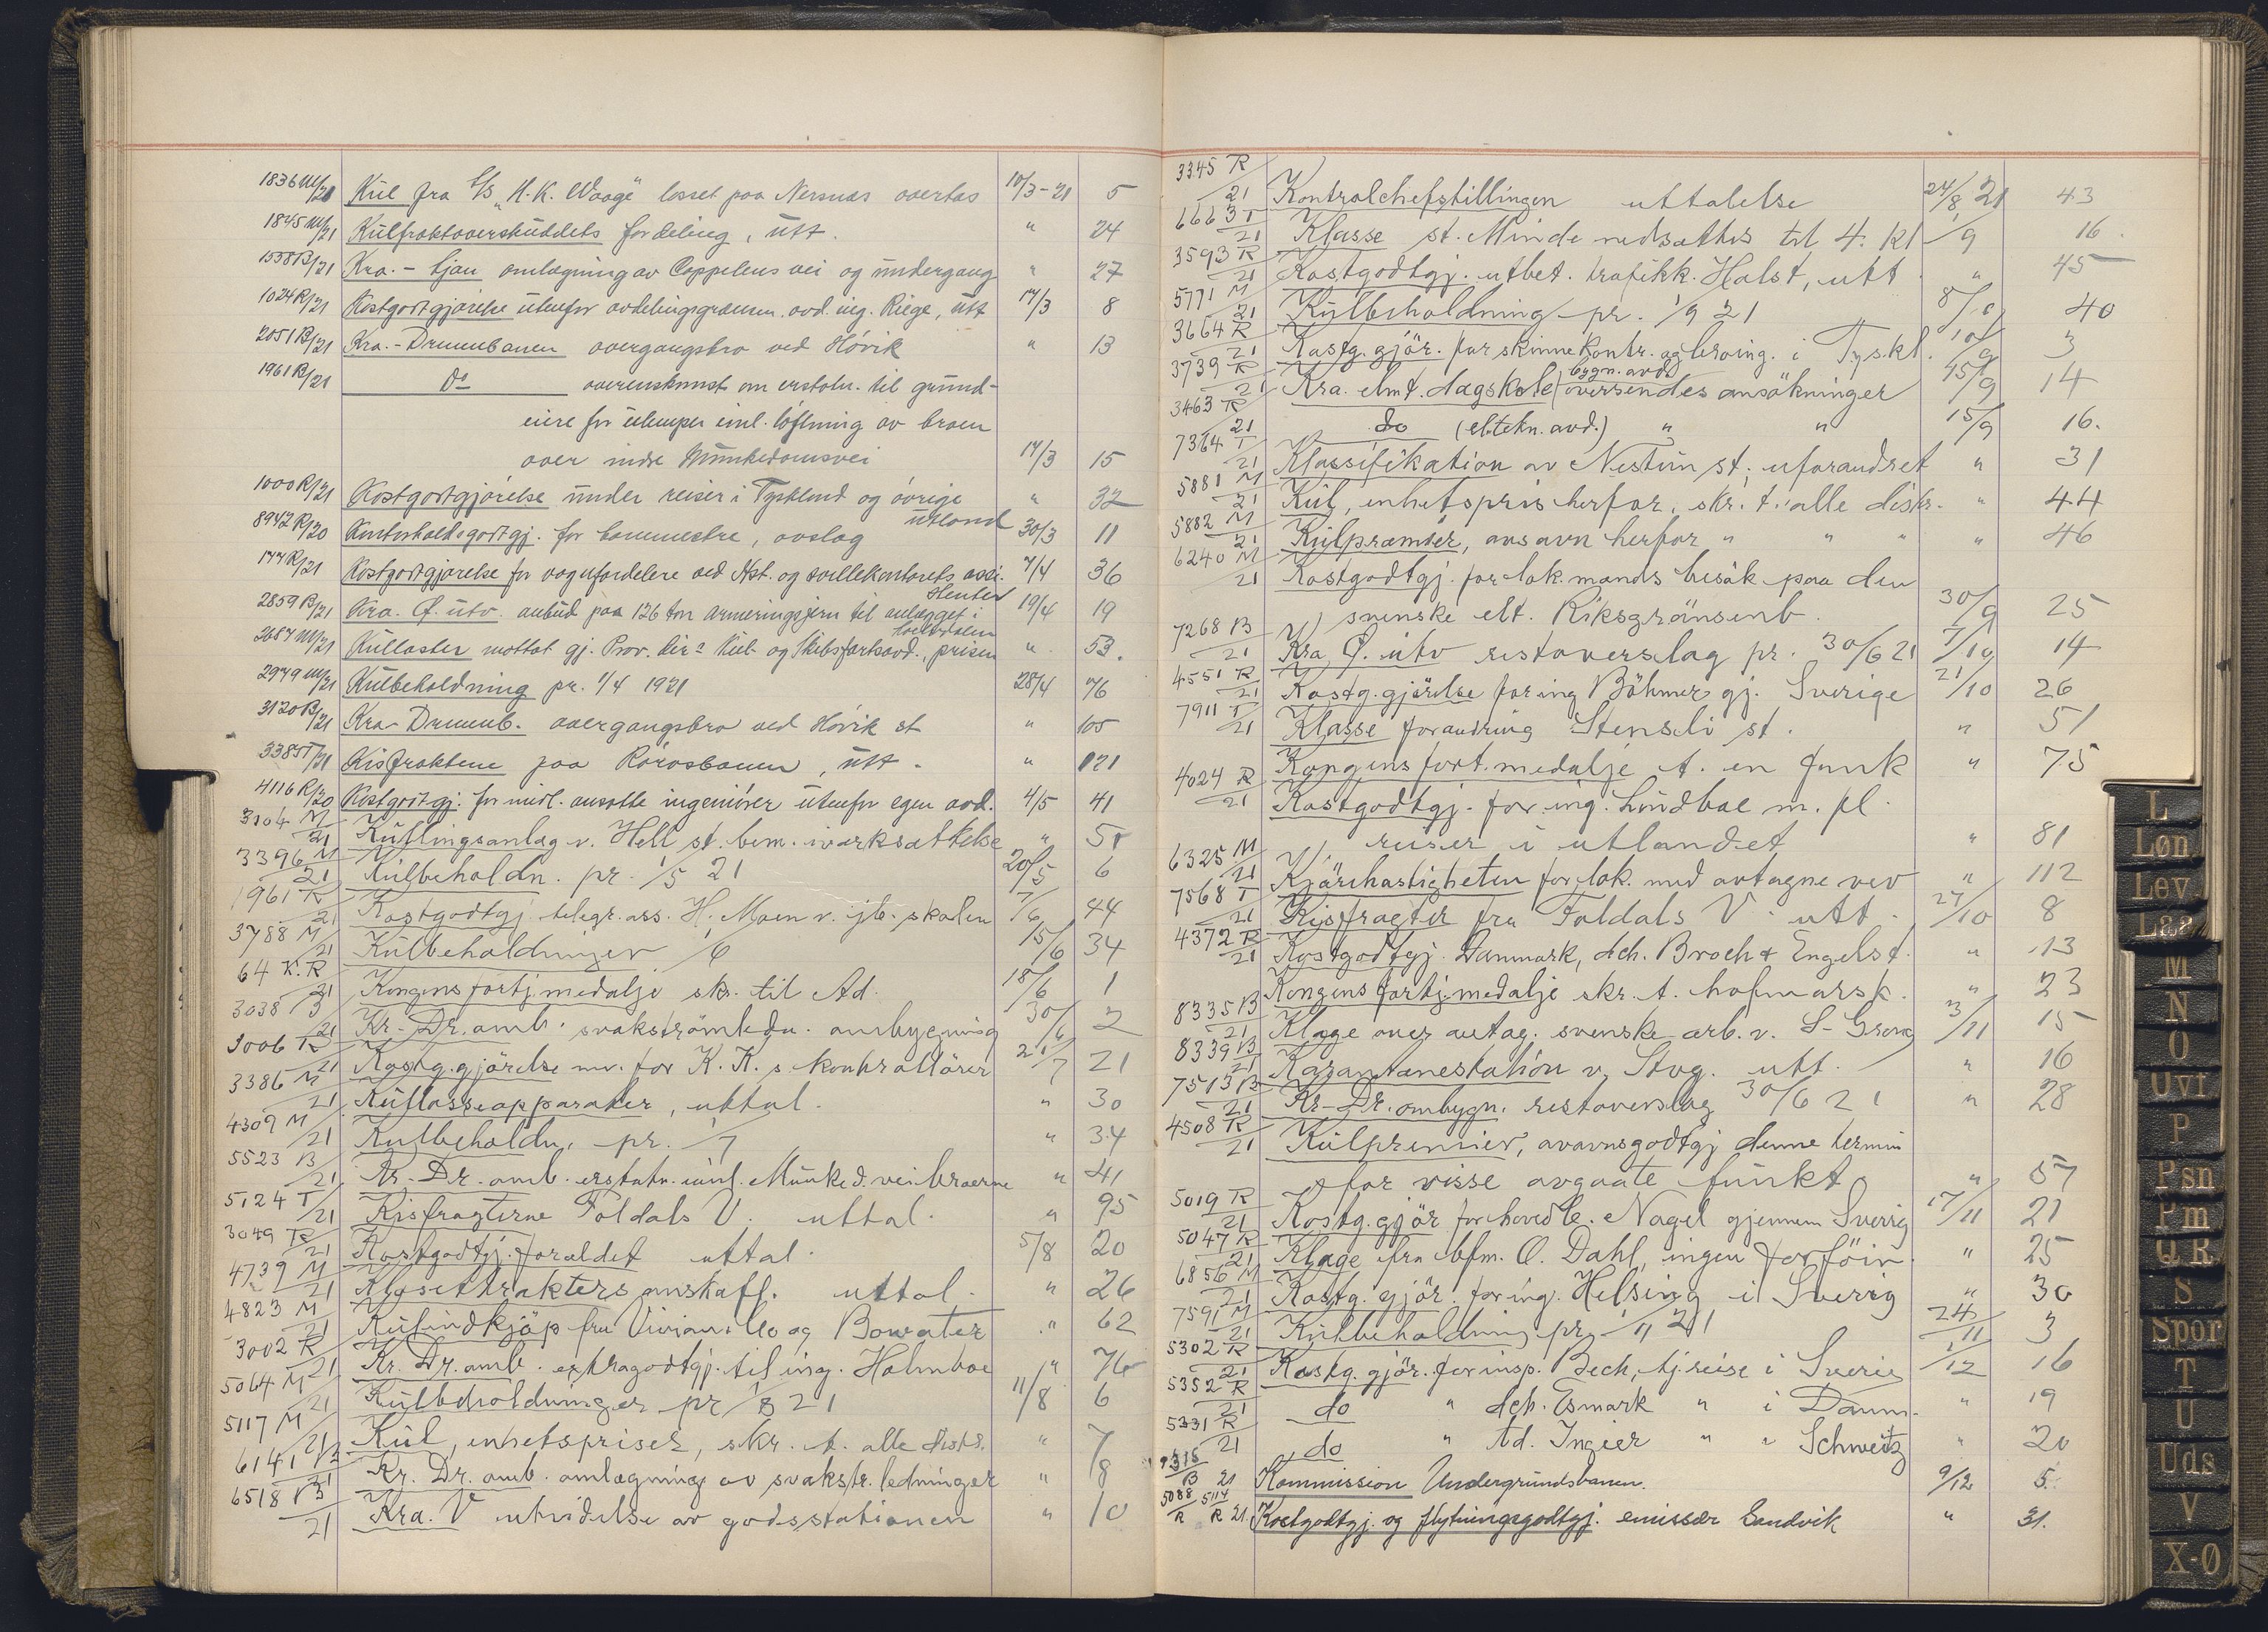 1836 M/21 Kul fra S/S "H. K. Waage" losset paa Nersnes overtas 10/3-21 5
1845 M/21 Kulfraktoverskuddets fordeling, utt. " 24
1558 B/21 Kra. - Ljan omlægning av Cappelens vei og undergang " 27
1024 R/21 Kostgodtgjørelse utenfor avdelingsgrænsen, avd. ing. Riege, utt 14/3 8
2051 B/21 Kra. - Drmmbanen overgangsbro ved Høvik " 13
1961 B/21 Do overenskomst om erstatn. til grund-
eiere for ulemper inl. løftning av broen
over indre Munkedamsvei 14/3 15
1000 R/21 Kostgodtgjørelse under reiser i Tyskland og øvrige
utland " 32
8942 R/20 Kontorholdsgodtgj. for banemestre, avslag 30/3 11
177 R/21 Kostgodtgjørelse for vognfordelere ved Hst. og svillekontorets assi-
stenter 7/4 36
2859 B/21 Kra. Ø. utv. anbud paa 126 ton armeringsjern til anlægget i
Lodalen 19/4 19
2687 M/21 Kullaster mottat gj. Prov. dir.s Kul- og Skibsfartsavd., prisen " 53.
2949 M/21 Kulbeholdning pr. 1/4 1921 28/4 76
3120 B/21 Kra-Drmmb. overgangsbro ved Høvik st " 105
3385 T/21 Kisfraktene paa Rørosbanen, utt. " 121
4116 R/20 Kostgodtgj. for midl. ansatte ingeniører utenfor egen avd. 4/5 41
3104 M/21 Kullingsanlæg v. Hell st. bem. iverksættelse " 51
3396 M/21 Kulbeholdn. pr. 1/5 21 20/5 6
1961 R/21 Kostgodtgj. telegr. ass. H. Moen v. jb. skolen 7/6 44
3788 M/21 Kulbeholdninger 1/6 15/6 34
64 K.R/21 Kongens fortj. medalje skr. til Ad. 18/6 1
3038 B/21 Kr-Dr. omb. svakstrømledn. ombygning 30/6 2
3006 R/21 Kostg. gjørelse mv. for K. K. s kontrollører 21/7 21
3386 M/21 Kullosseapparater, uttal. " 30
4309 M/21 Kulbeholdn. pr. 1/7 " 34
5523 B/21 Kr.-Dr. omb. erstatn. inul. Munked. vei broerne " 41
5124 T/21 Kisfragterne Foldals V. uttal. " 95
3049 R/21 Kostgodtgj. foreldet uttal. 5/8 20
4739 M/21 Klosettrakters anskaff. uttal. " 26
4823 M/21 Kulindkjøp fra Vivian & Co og Bowater " 62
3002 R/21 Kr. Dr. omb. extragodtgj. til ing. Holmboe " 76
5064 M/21 Kulbeholdninger pr 1/8 21 11/8 6
5117 M/21 Kul, enhetspriser, skr. t. alle distr. " 7
6141 B/21 Kr. Dr. omb. omlægning av svakstr. ledninger " 8
6518 B/21 Kra. V utvidelse av godsstationen " 10
3345 R/21 Kontrolchefstillingen uttalelse 24/8 21 43
6663 T/21 Klasse st. Minde nedsættes til 4. kl 1/9 16.
3593 R/21 Kostgodtgj. utbet. trafikk. Holst, utt. " 45
5771 M/21 Kulbeholdning pr. 1/9 21 8/9 40
3664 R/21 Kostg. gjør. for skinnekontr. og broing. i Tyskl. 10/9 3
3739 R/21 Kra. elmt. dagskole (bygn. avd.) oversendes ansøkninger 15/9 14
3463 R/21 do (eltekn. avd.) " " 15/9 16.
7364 T/21 Klassifikation av Nestun st. uforandret " 31
5881 M/21 Kul, enhetspris herfor, skr. t. alle distr. " 44
5882 M/21 Kulpræmier, ansavn herfor " " " " 46
6240 M/21 Kostgodtgj. for lok. mænds besøk paa den
svenske elt. Riksgränsenb. 30/9 25
7268 B/21 Kra Ø. utv restoverslag pr. 30/6 21 7/10 14
4551 R/21 Kostg. gjørelse for ing Böhmer gj. Sverige 21/10 26
7911 T/21 Klasse forandring Stensli st. " 51
Kongens fort. medalje t. en funk " 75
4024 R/21 Kostgodtgj. for ing. Lundboe m. fl.
reiser i utlandet " 81
6325 M/21 Kjørehastigheten for lok. med avtagne veiv " 112
7568 T/21 Kisfragter fra Foldals V. utt. 27/10 8
4372 R/21 Kostgodtgj. Danmark, dch. Broch & Engelst. " 13
Kongens fortj. medalje skr. t. hofmarsk. " 23
8335 B/21 Klage over antag. svenske arb. v. S-Grong 3/11 15
8339 B/21 Karantænestation v. Stvg. utt. " 16
7513 B/21 Kr-Dr. ombygn. restoverslag 30/6 21 " 28
4508 R/21 Kulpremier, avavnsgodtgj denne termin
for visse avgaate funkt " 57
5019 R/21 Kostg. gjør for hovedb. Nagel gjennem Sverig 17/11 21
5047 R/21 Klage fra bfm. O. Dahl, ingen forføin. " 25
6856 M/21 Kostg. gjør. for ing. Helsing i Sverig " 30
7591 M/21 Kulbeholdning pr. 1/11 21 24/11 3
5302 R/21 Kostg. gjør. for insp. Bech, tj. reise i Sverig 1/12 16
5352 R/21 do " dch. Esmark " i Danm. " 19
5331 R/21 do " td. Ingier " " Schweitz " 20
9315 B 21 Kommission Undergrundsbanen. 9/12 5.
5088 R 5114 R 21. Kostgodtgj. og flytningsgodtgj. emissær Sandvik " 31.
L
Løn
Lev
Laa
M
N
O
Ovf
P
Psn
Pm
Q R
S
Spor
T
U
Uds
V
X-Ø